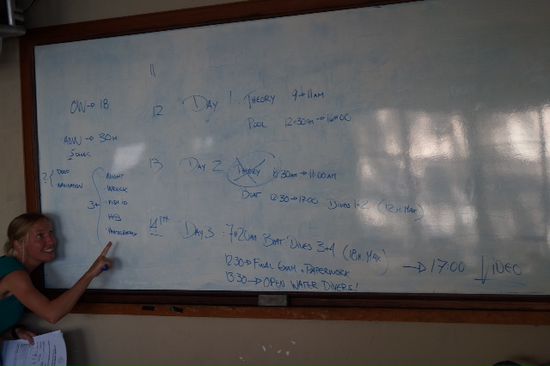 11
OW → 18
ADW → 30M
5 DIVES
2 { DEEP
NAVIGATION
3+ { NIGHT
WRECK
FISH ID
PPB
12 DAY 1 THEORY 9 → 11AM
POOL 12:30PM → 16H00
13 DAY 2 THEORY 9:30AM → 11:00AM
BOAT 12:30 → 17:00 DIVES 1+2 (12M MAX)
14TH DAY 3 : 7:20AM BOAT DIVES 3+4 (18M MAX)
12:30 → FINAL EXAM + PAPERWORK
13:30 → OPEN WATER DIVERS!
→ 17:00 VIDEO